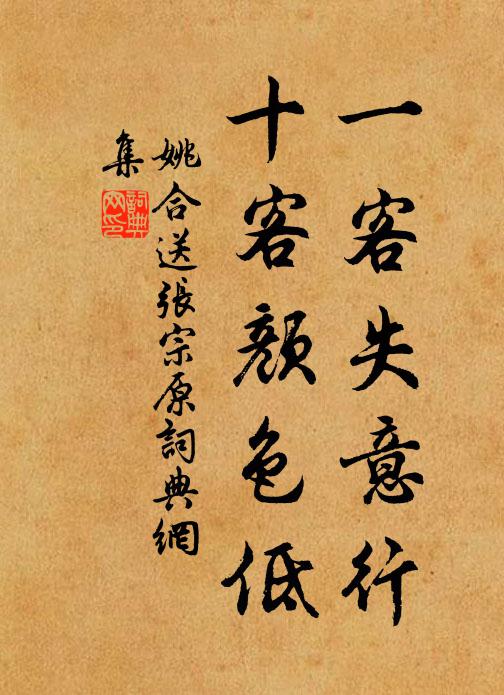 一客失意行
十客顏色低
姚合送張宗原詞典網
集
詞典
网印